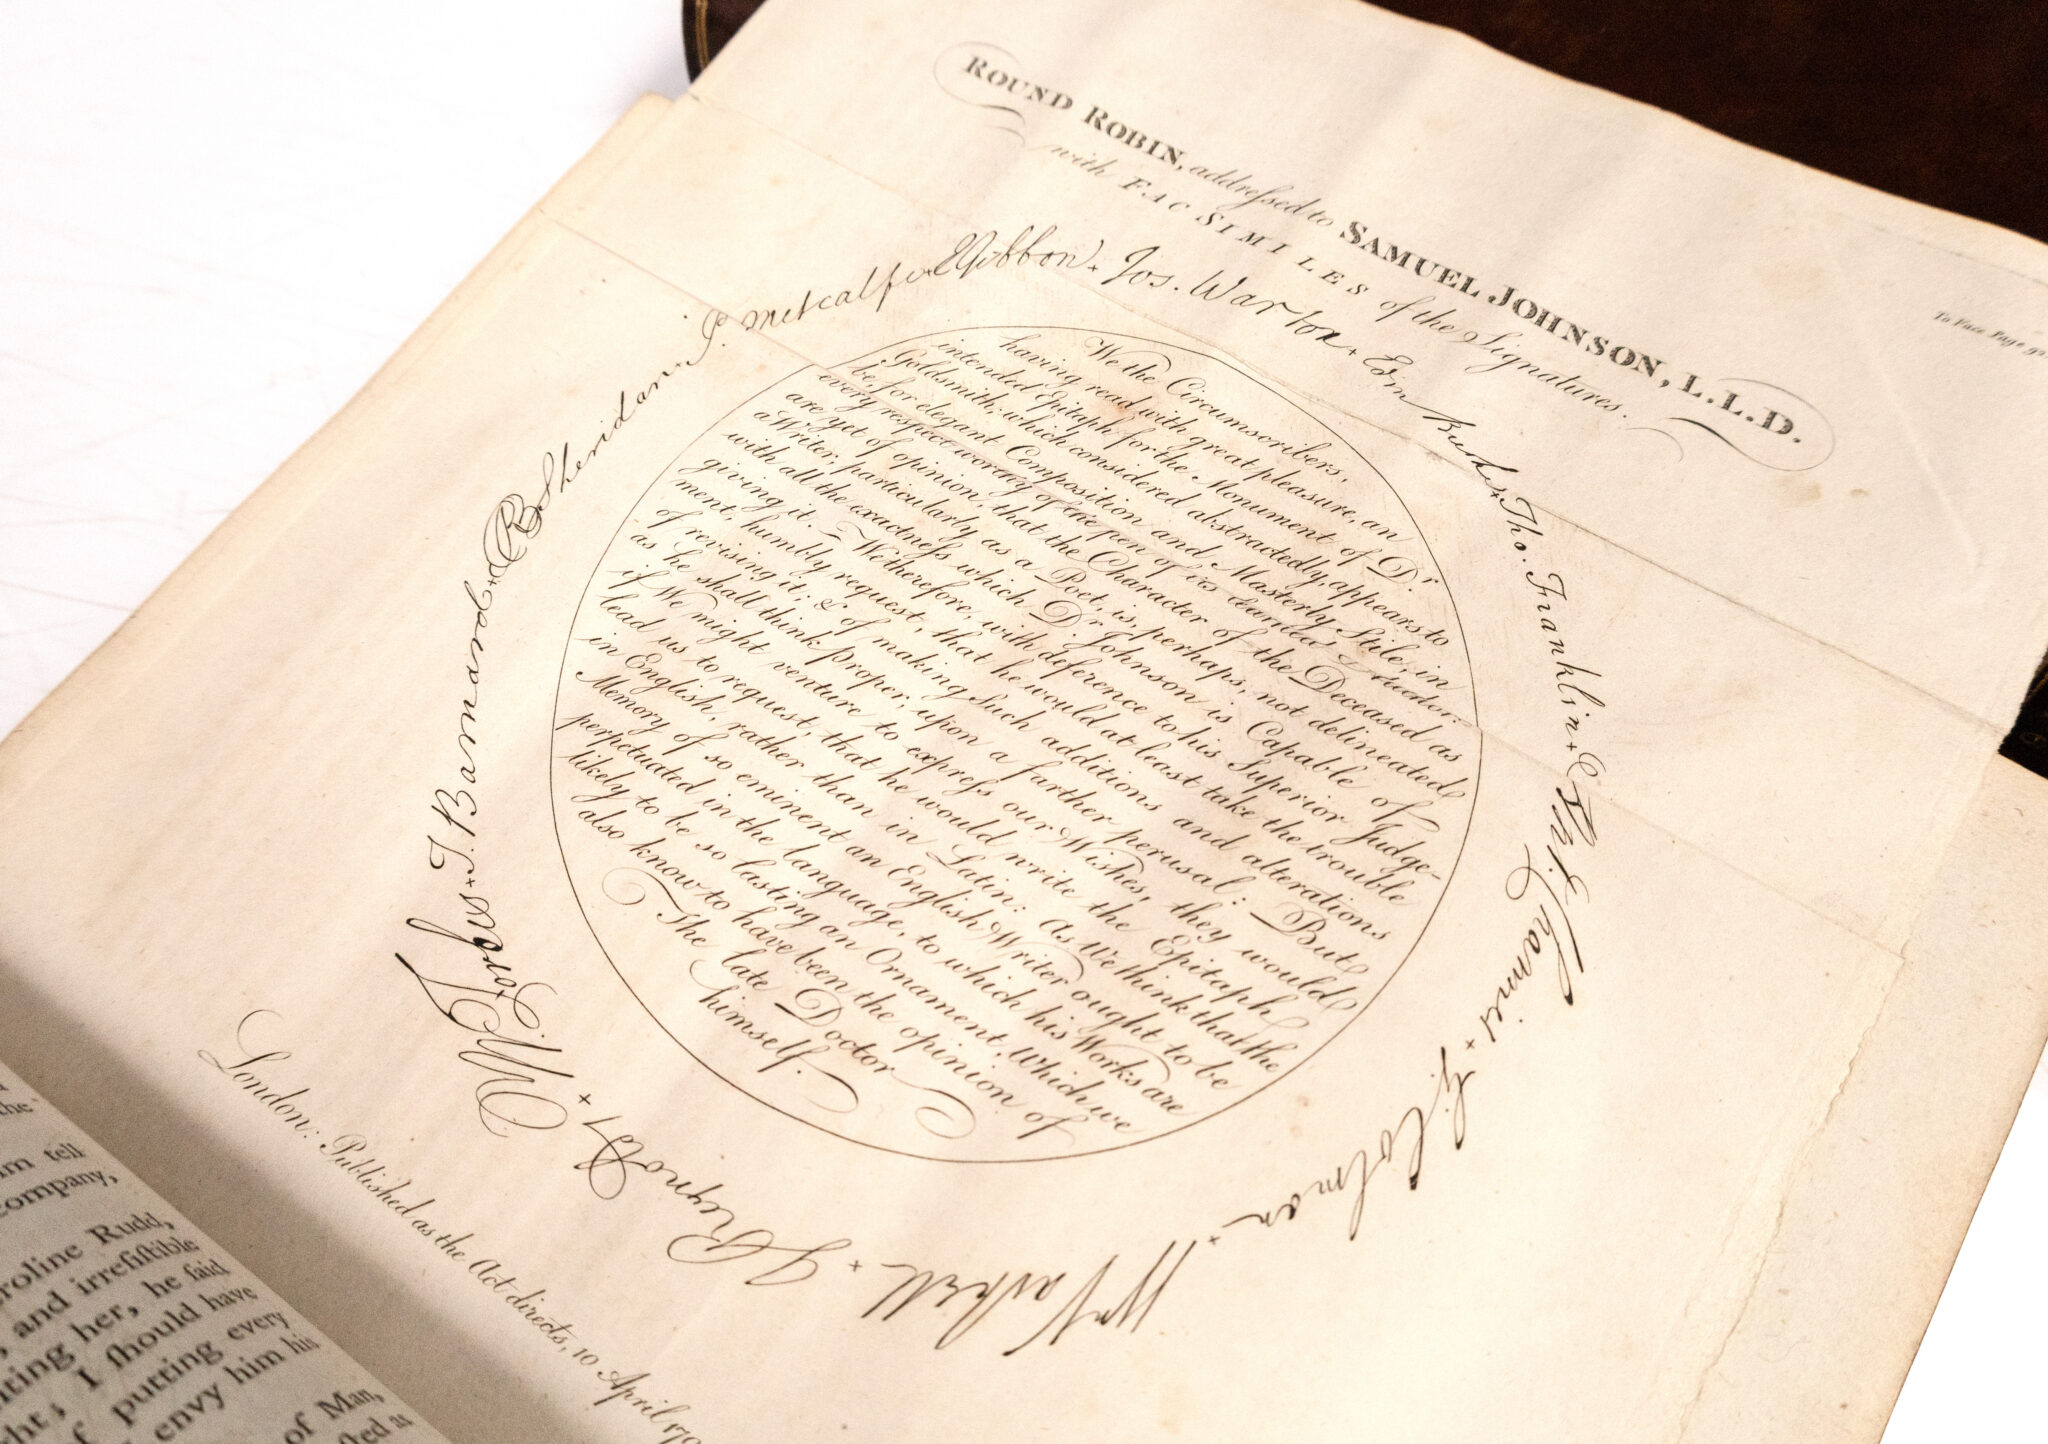 ROUND ROBIN, addreſsed to SAMUEL JOHNSON, L.L.D.
with FAC SIMILES of the Signatures.
To Face Page
We the Circumscribers,
having read with great pleasure, an
intended Epitaph for the Monument of Dr.
Goldsmith; which considered abstractedly, appears to
be, for elegant Composition and Masterly Stile, in
every respect worthy of the pen of its learned Author:
are yet of opinion, that the Character of the Deceased as
a Writer, particularly as a Poet, is, perhaps, not delineated
with all the exactneſs which Dr. Johnson is Capable of
giving it. — We therefore, with deference to his Superior Judge-
ment, humbly request, that he would at least take the trouble
of revising it; & of making Such additions and alterations
as he shall think proper, upon a farther perusal: But
if We might venture to expreſs our Wishes, they would
lead us to request, that he would write the Epitaph
in English, rather than in Latin: As We think that the
Memory of so eminent an English Writer ought to be
perpetuated in the language, to which his Works are
likely to be so lasting an Ornament, Which we
also know to have been the opinion of
The late Doctor
himself.
Gibbon + Jos. Warton + Edm Burke + Tho. Franklin + Ant. Chamier + G. Colman + Wm Vaskell + J Reynolds + W. Forbes + T. Barnard + RB Sheridan + P. Metcalfe +
London: Published as the Act directs, 10 April
the
tell
company,
Rudd,
and irreſiſtible
her, he ſaid
I ſhould have
putting every
envy him his
of Man,
as